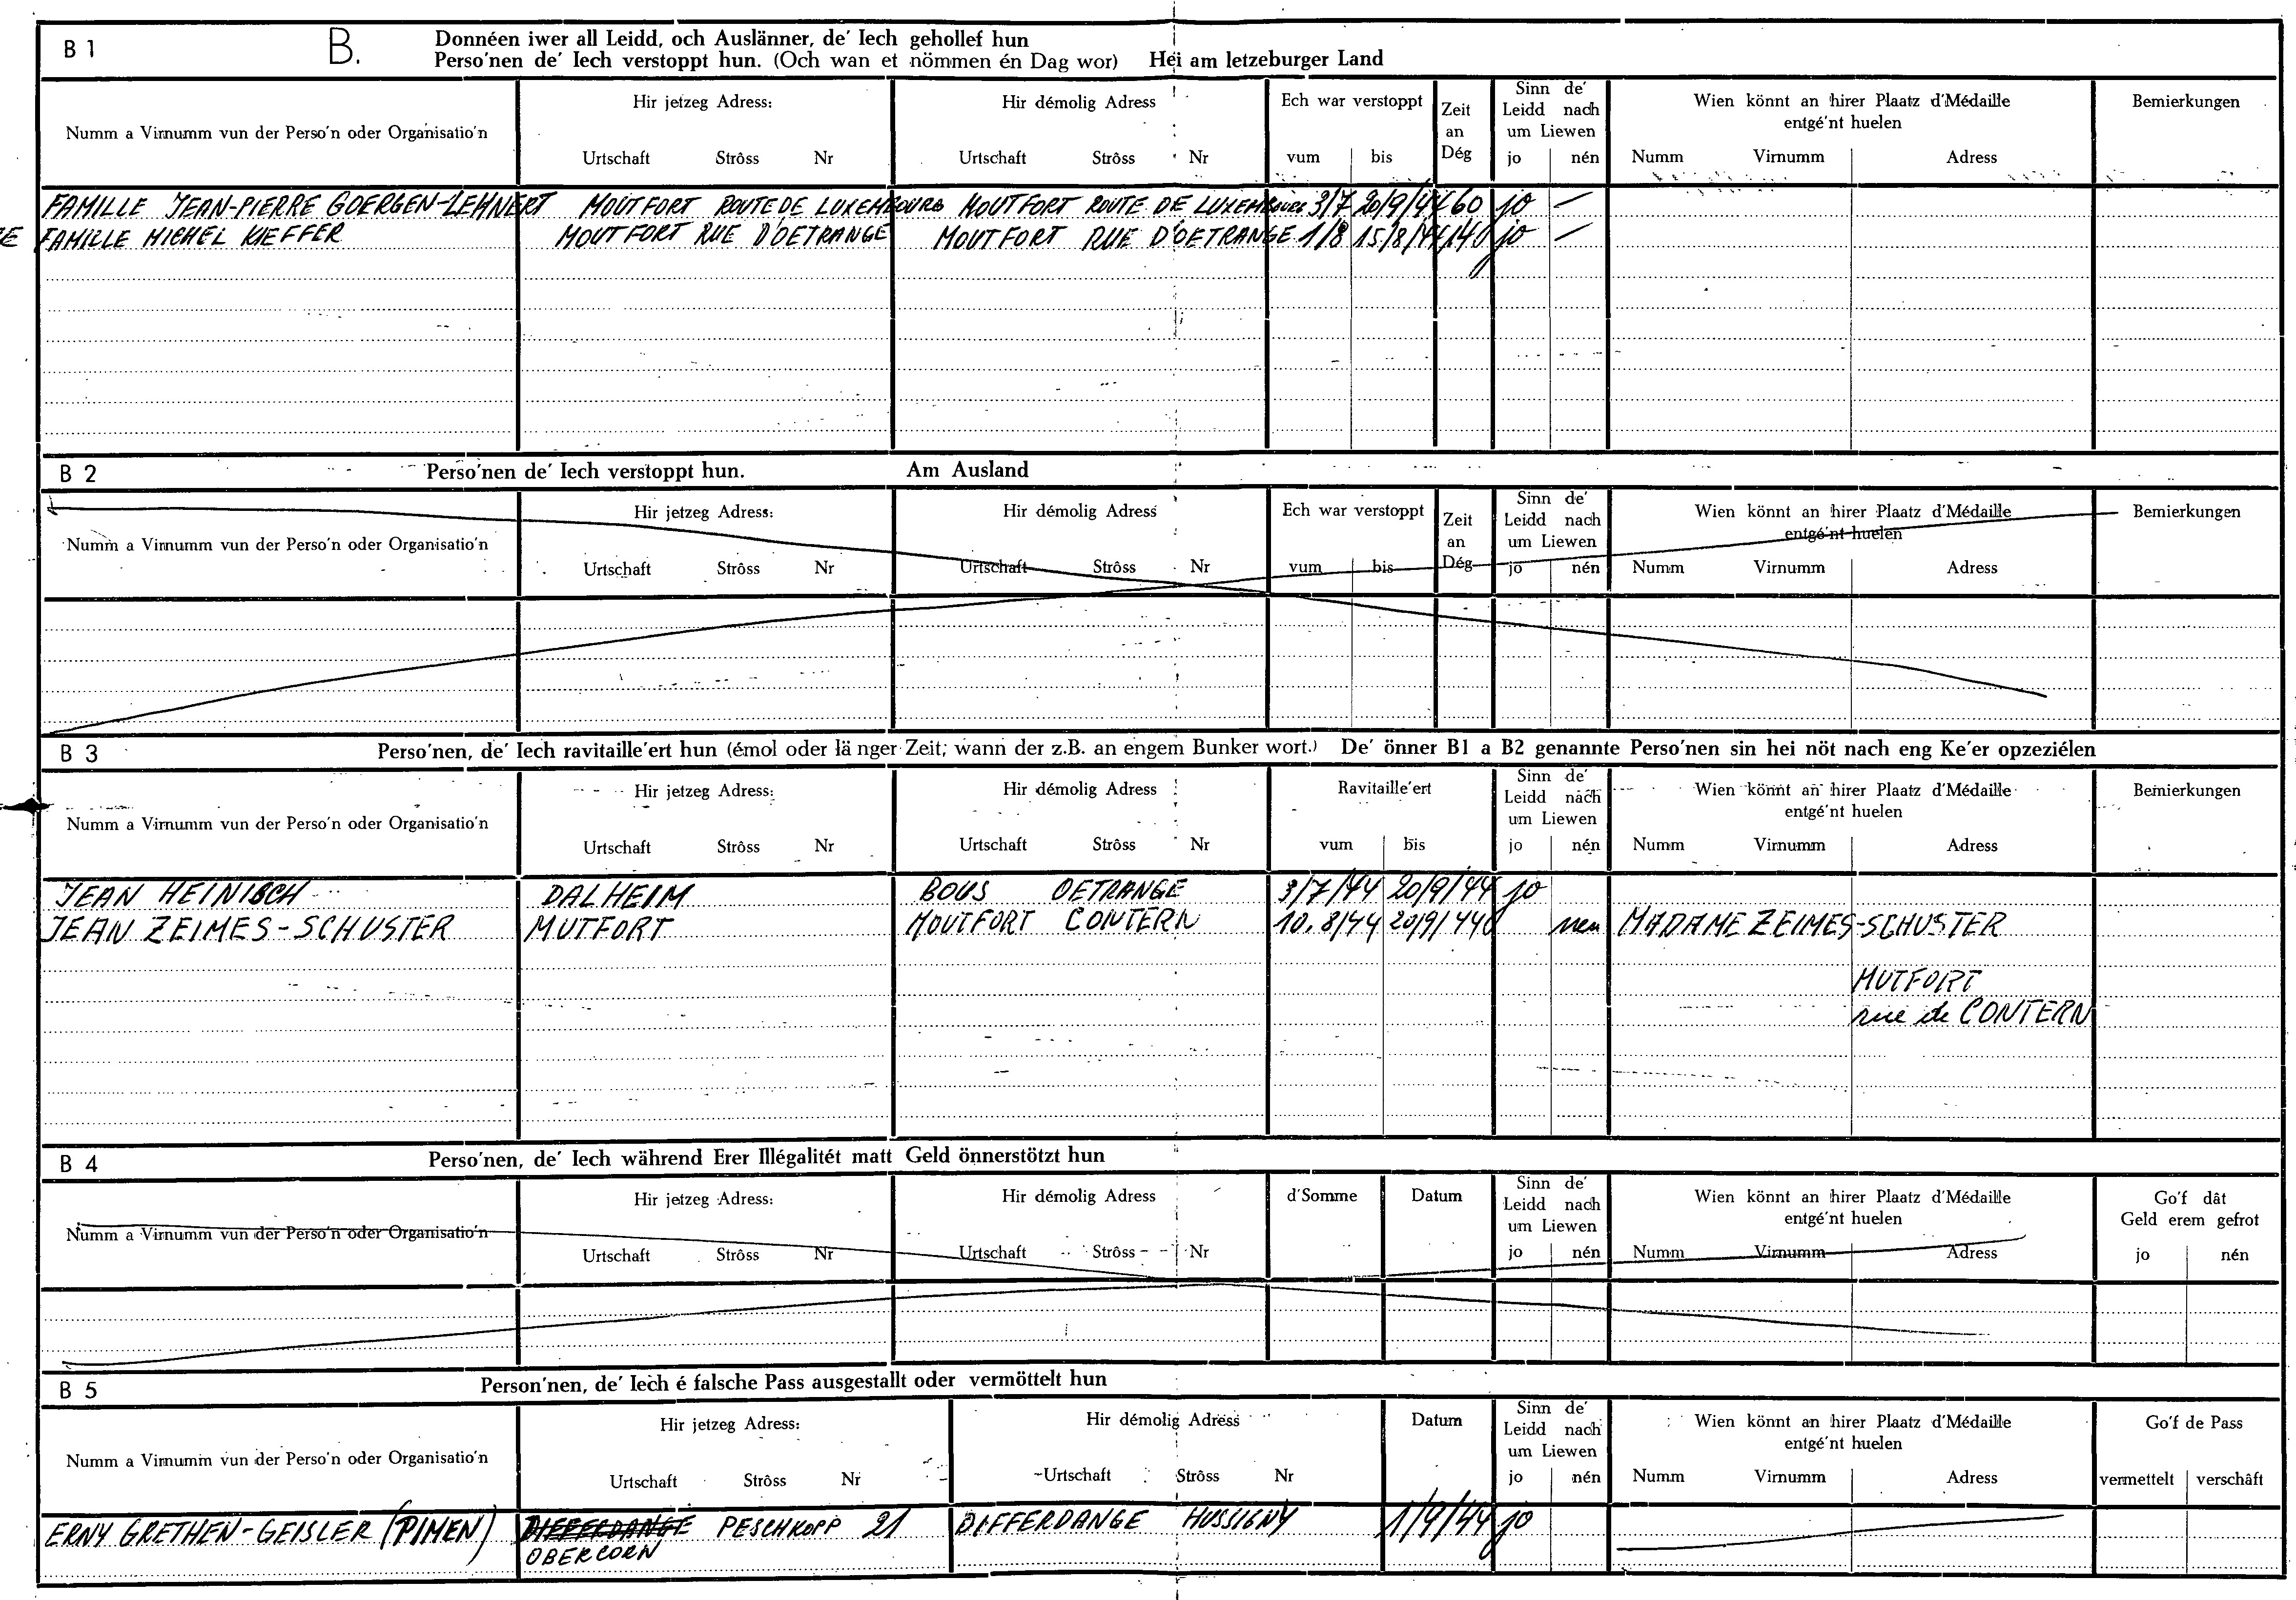 B 1 B. Donnéen iwer all Leidd, och Auslänner, de' Iech gehollef hun
Perso'nen de' Iech verstoppt hun. (Och wan et nömmen én Dag wor) Hei am letzeburger Land
Numm a Virnumm vun der Perso'n oder Organisatio'n Hir jetzeg Adress: Hir démolig Adress Ech war verstoppt Zeit an Dég Sinn de' Leidd nach um Liewen Wien könnt an hirer Plaatz d'Médaille entgé'nt huelen Bemierkungen
Urtschaft Strôss Nr Urtschaft Strôss Nr vum bis jo nén Numm Virnumm Adress
FAMILLE JEAN-PIERRE GOERGEN-LEHNERT MOUTFORT ROUTE DE LUXEMBOURG MOUTFORT ROUTE DE LUXEMBOURG 3/7 20/9/44 60 jo —
FAMILLE MICHEL KIEFFER MOUTFORT RUE D'OETRANGE MOUTFORT RUE D'OETRANGE 1/8 15/8/44 14 jo —
B 2 Perso'nen de' Iech verstoppt hun. Am Ausland
Numm a Virnumm vun der Perso'n oder Organisatio'n Hir jetzeg Adress: Hir démolig Adress Ech war verstoppt Zeit an Dég Sinn de' Leidd nach um Liewen Wien könnt an hirer Plaatz d'Médaille entgé'nt huelen Bemierkungen
Urtschaft Strôss Nr Urtschaft Strôss Nr vum bis jo nén Numm Virnumm Adress
B 3 Perso'nen, de' Iech ravitaille'ert hun (émol oder länger Zeit; wann der z.B. an engem Bunker wort.) De' önner B1 a B2 genannte Perso'nen sin hei nöt nach eng Ke'er opzeziélen
Numm a Virnumm vun der Perso'n oder Organisatio'n Hir jetzeg Adress: Hir démolig Adress Ravitaille'ert Sinn de' Leidd nach um Liewen Wien könnt an hirer Plaatz d'Médaille entgé'nt huelen Bemierkungen
Urtschaft Strôss Nr Urtschaft Strôss Nr vum bis jo nén Numm Virnumm Adress
JEAN HEINISCH DALHEIM BOUS OETRANGE 3/7/44 20/9/44 jo
JEAN ZEIMES-SCHUSTER MUTFORT MOUTFORT CONTERN 10.8/44 20/9/44 nen MADAME ZEIMES-SCHUSTER
MUTFORT
rue de CONTERN
B 4 Perso'nen, de' Iech während Erer Illégalitét matt Geld önnerstötzt hun
Numm a Virnumm vun der Perso'n oder Organisatio'n Hir jetzeg Adress: Hir démolig Adress d'Somme Datum Sinn de' Leidd nach um Liewen Wien könnt an hirer Plaatz d'Médaille entgé'nt huelen Go'f dât Geld erem gefrot
Urtschaft Strôss Nr Urtschaft Strôss Nr jo nén Numm Virnumm Adress jo nén
B 5 Person'nen, de' Iech é falsche Pass ausgestallt oder vermöttelt hun
Numm a Virnumm vun der Perso'n oder Organisatio'n Hir jetzeg Adress: Hir démolig Adress Datum Sinn de' Leidd nach um Liewen Wien könnt an hirer Plaatz d'Médaille entgé'nt huelen Go'f de Pass
Urtschaft Strôss Nr Urtschaft Strôss Nr jo nén Numm Virnumm Adress vermettelt verschâft
ERNY GRETHEN-GEISLER (PIMEN) DIFFERDANGE PESCHKOPP 21 DIFFERDANGE HUSSIGNY 1/9/44 jo
OBERCORN